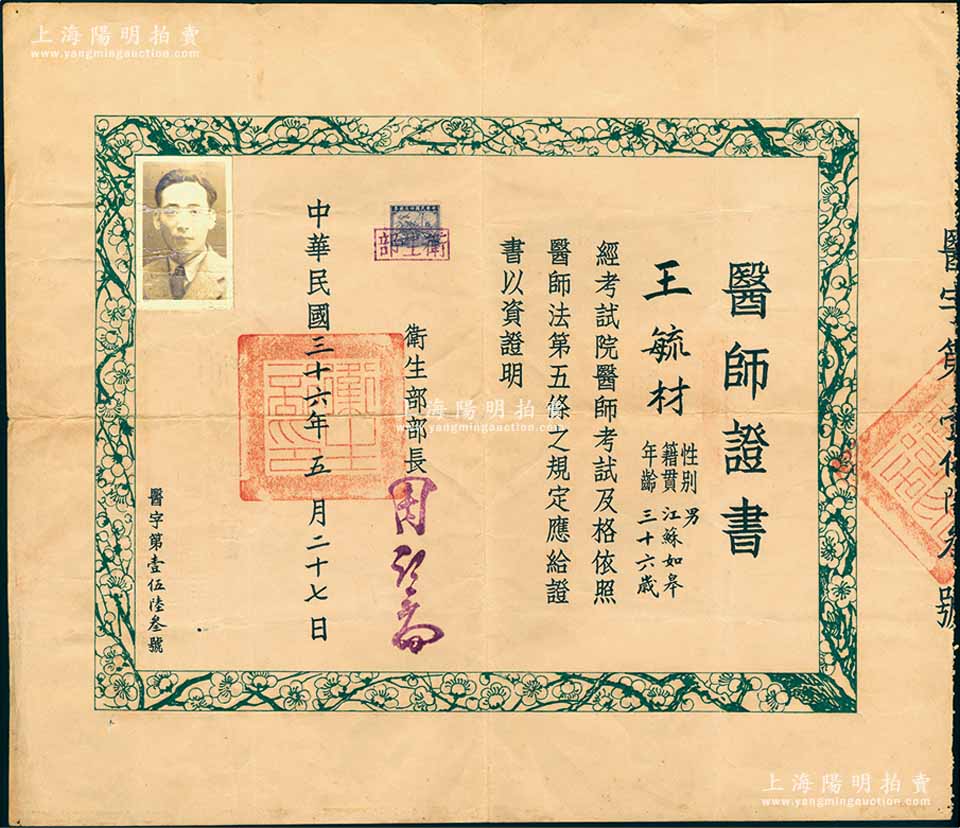 上海陽明拍賣
www.yangmingauction.com
醫師證書
王毓材
性別 男
籍貫 江蘇如皋
年齡 三十六歲
經考試院醫師考試及格依照
醫師法第五條之規定應給證
書以資證明
衛生部部長
衛生部
中華民國三十六年五月二十七日
醫字第壹伍陸叄號
醫字第壹伍陸叄號
上海陽明拍賣
www.yangmingauction.com
上海陽明拍賣
www.yangmingauction.com